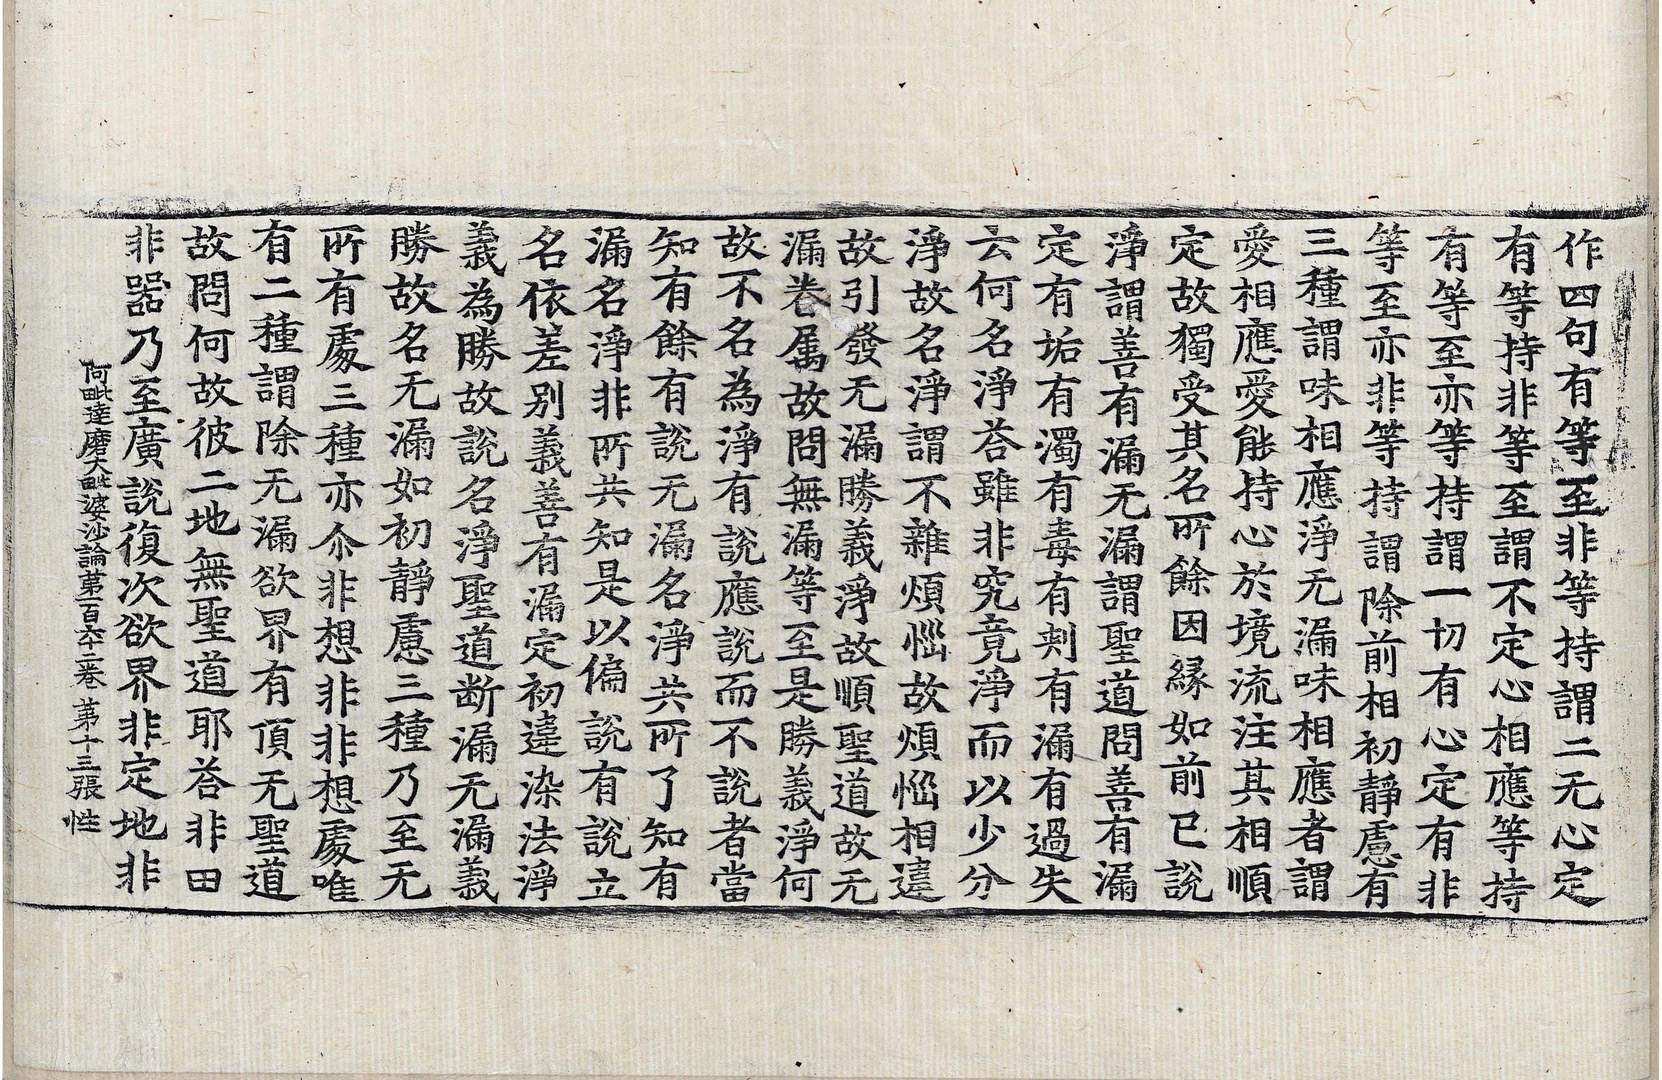 作四句有等至非等持謂二无心定
有等持非等至謂不定心相應等持
有等至亦等持謂一切有心定有非
等至亦非等持謂除前相初靜慮有
三種謂味相應淨无漏味相應者謂
愛相應愛能持心於境流注其相順
定故獨受其名所餘因縁如前已說
淨謂善有漏无漏謂聖道問善有漏
定有垢有濁有毒有刺有漏有過失
云何名淨荅雖非究竟淨而以少分
淨故名淨謂不雜煩惱故煩惱相違
故引發无漏勝義淨故順聖道故无
漏眷属故問無漏等至是勝義淨何
故不名為淨有說應說而不說者當
知有餘有說无漏名淨共所了知有
漏名淨非所共知是以偏說有說立
名依差别義善有漏定初違染法淨
義為勝故說名淨聖道断漏无漏義
勝故名无漏如初靜慮三種乃至无
所有處三種亦尒非想非非想處唯
有二種謂除无漏欲界有頂无聖道
故問何故彼二地無聖道耶荅非田
非器乃至廣說復次欲界非定地非
阿毗達磨大毗婆沙論第一百六十二卷 第十三張 性